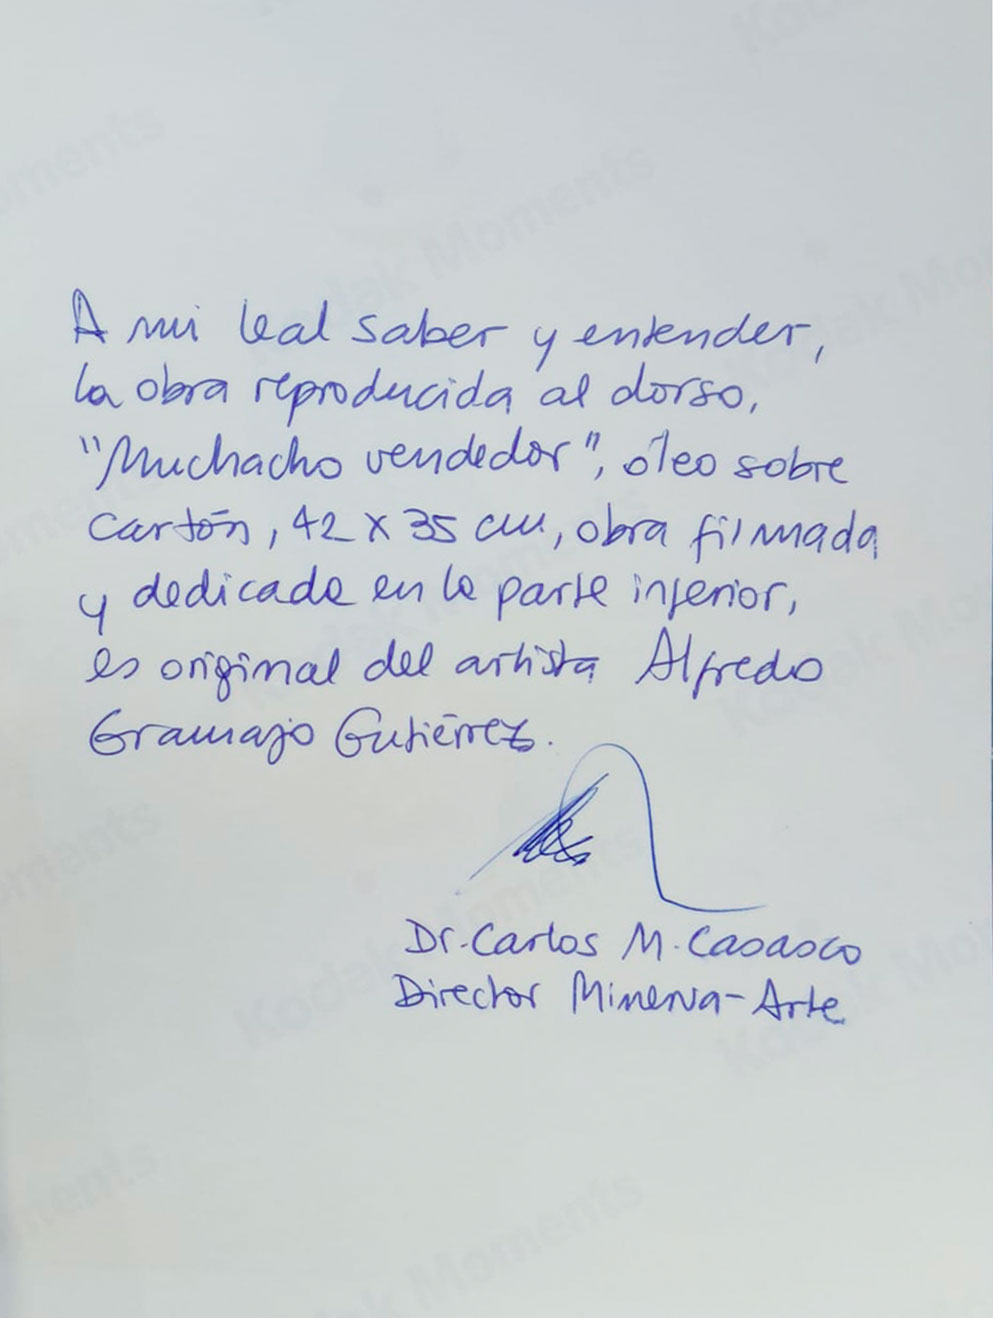 A mi leal saber y entender,
la obra reproducida al dorso,
"Muchacho vendedor", óleo sobre
cartón, 42 x 35 cm, obra firmada
y dedicada en la parte inferior,
es original del artista Alfredo
Gramajo Gutiérrez.
Dr. Carlos M. Casasco
Director Minerva-Arte
Kodak Moments